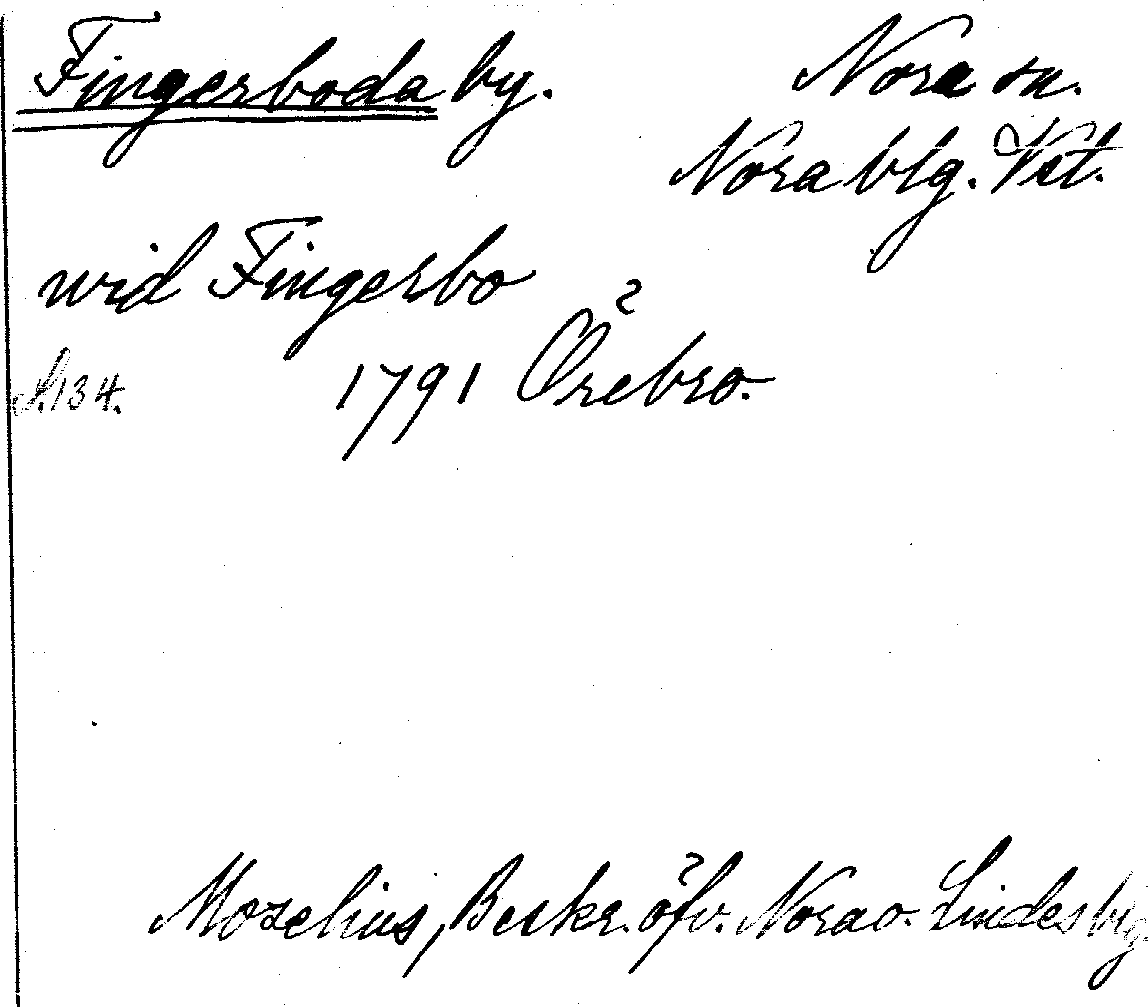 Fingerboda by. Nora sn.
Nora blg. Vstl.
wid Fingerbo
s. 134. 1791 Örebro.
Mozelius, Beskr. öfv. Nora o. Lindes blg.